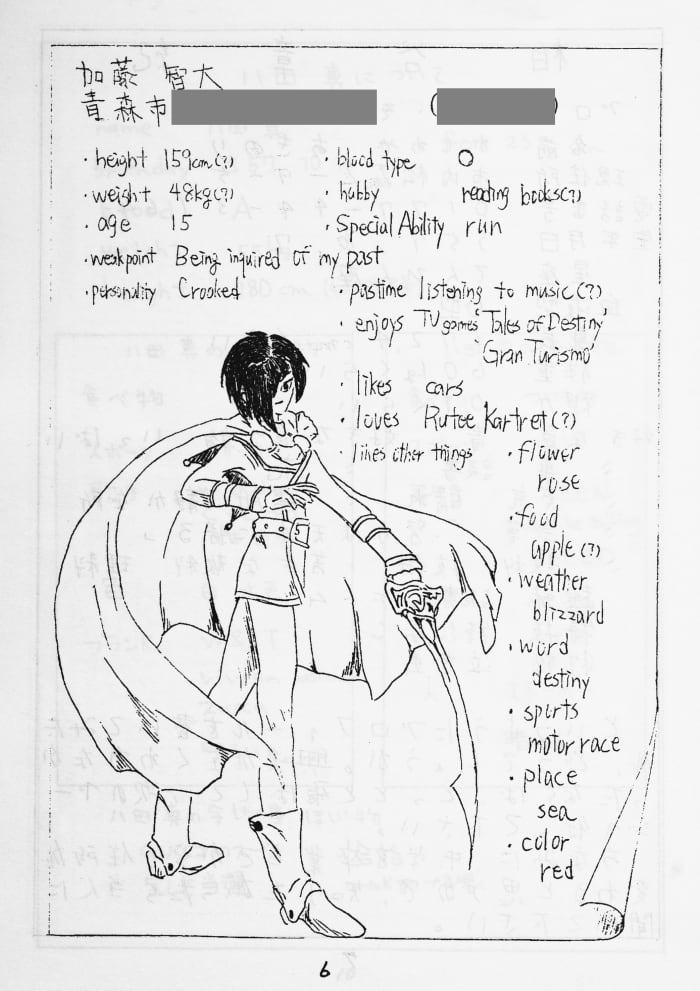 加藤 智大
青森市
(          )
・height 159cm(?)
・weight 48kg(?)
・age 15
・weakpoint Being inquired of my past
・personality Crooked
・blood type O
・hobby reading books(?)
・Special Ability run
・pastime listening to music(?)
・enjoys TV games 'Tales of Destiny'
'Gran Turismo'
・likes cars
・loves Rutee Kartret(?)
・likes other things
・flower
rose
・food
apple(?)
・weather
blizzard
・word
destiny
・sports
motor race
・place
sea
・color
red
6